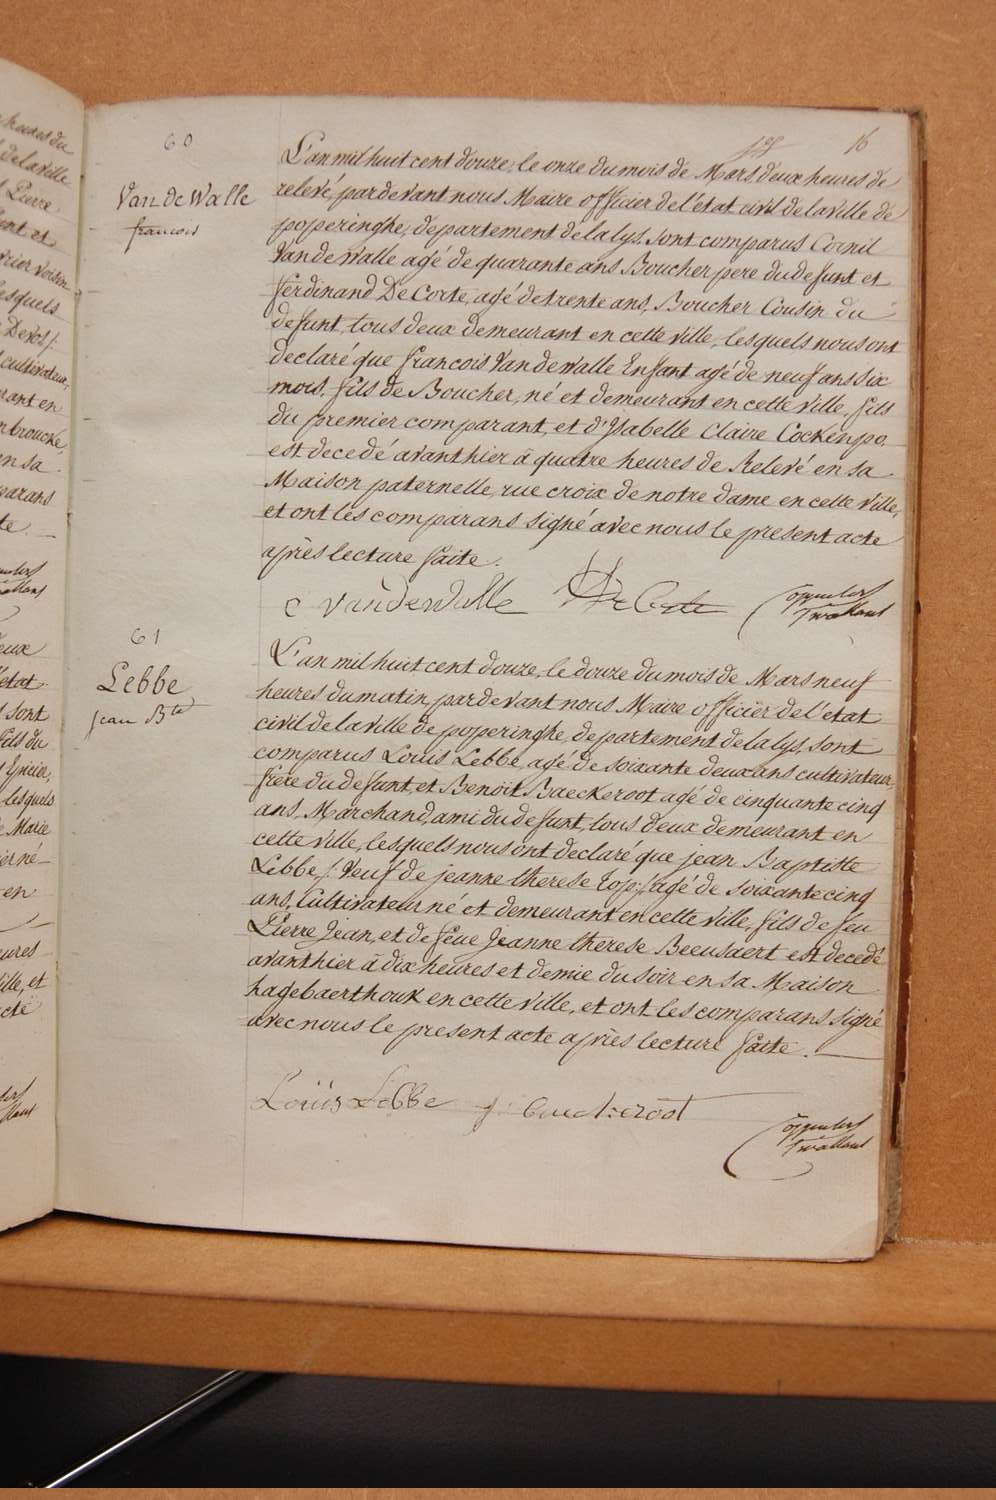 16
60
Van de Walle
francois
L'an mil huit cent douze, le onze du mois de Mars, deux heures de
relevé, pardevant nous Maire officier de l'état civil de la ville de
poperinghe, departement de la lys, sont comparus Cornil
Van de walle agé de quarante ans Boucher pere du defunt et
Ferdinand De Corte, agé de trente ans, Boucher Cousin du
defunt, tous deux demeurant en cette ville, lesquels nous ont
declaré que francois Van de walle Enfant agé de neuf ans six
mois, fils de Boucher, né et demeurant en cette ville, fils
du premier comparant, et d'Ysabelle Claire Cockenpo.
est decedé avanthier à quatre heures de Relevé en sa
Maison paternelle, rue croix de notre dame en cette ville,
et ont les comparans signé avec nous le present acte
après lecture faite.
C vandewalle De Corte
61
Lebbe
jean Bte
L'an mil huit cent douze, le douze du mois de Mars neuf
heures du matin, pardevant nous Maire officier de l'etat
civil de la ville de poperinghe, departement de la lys, sont
comparus Louis Lebbe, agé de soixante deux ans cultivateur,
frere du defunt, et Benoit Baeckeroot agé de cinquante cinq
ans, Marchand, ami du defunt, tous deux demeurant en
cette ville, lesquels nous ont declaré que jean Baptiste
Lebbe /: Veuf de jeanne therese Top :/ agé de soixante cinq
ans, Cultivateur né et demeurant en cette ville, fils de feu
Pierre Jean, et de feue Jeanne therese Beeusaert est decedé
avanthier à dix heures et demie du soir en sa Maison
hagebaerthouk en cette ville, et ont les comparans signé
avec nous le present acte après lecture faite.
Louis Lebbe